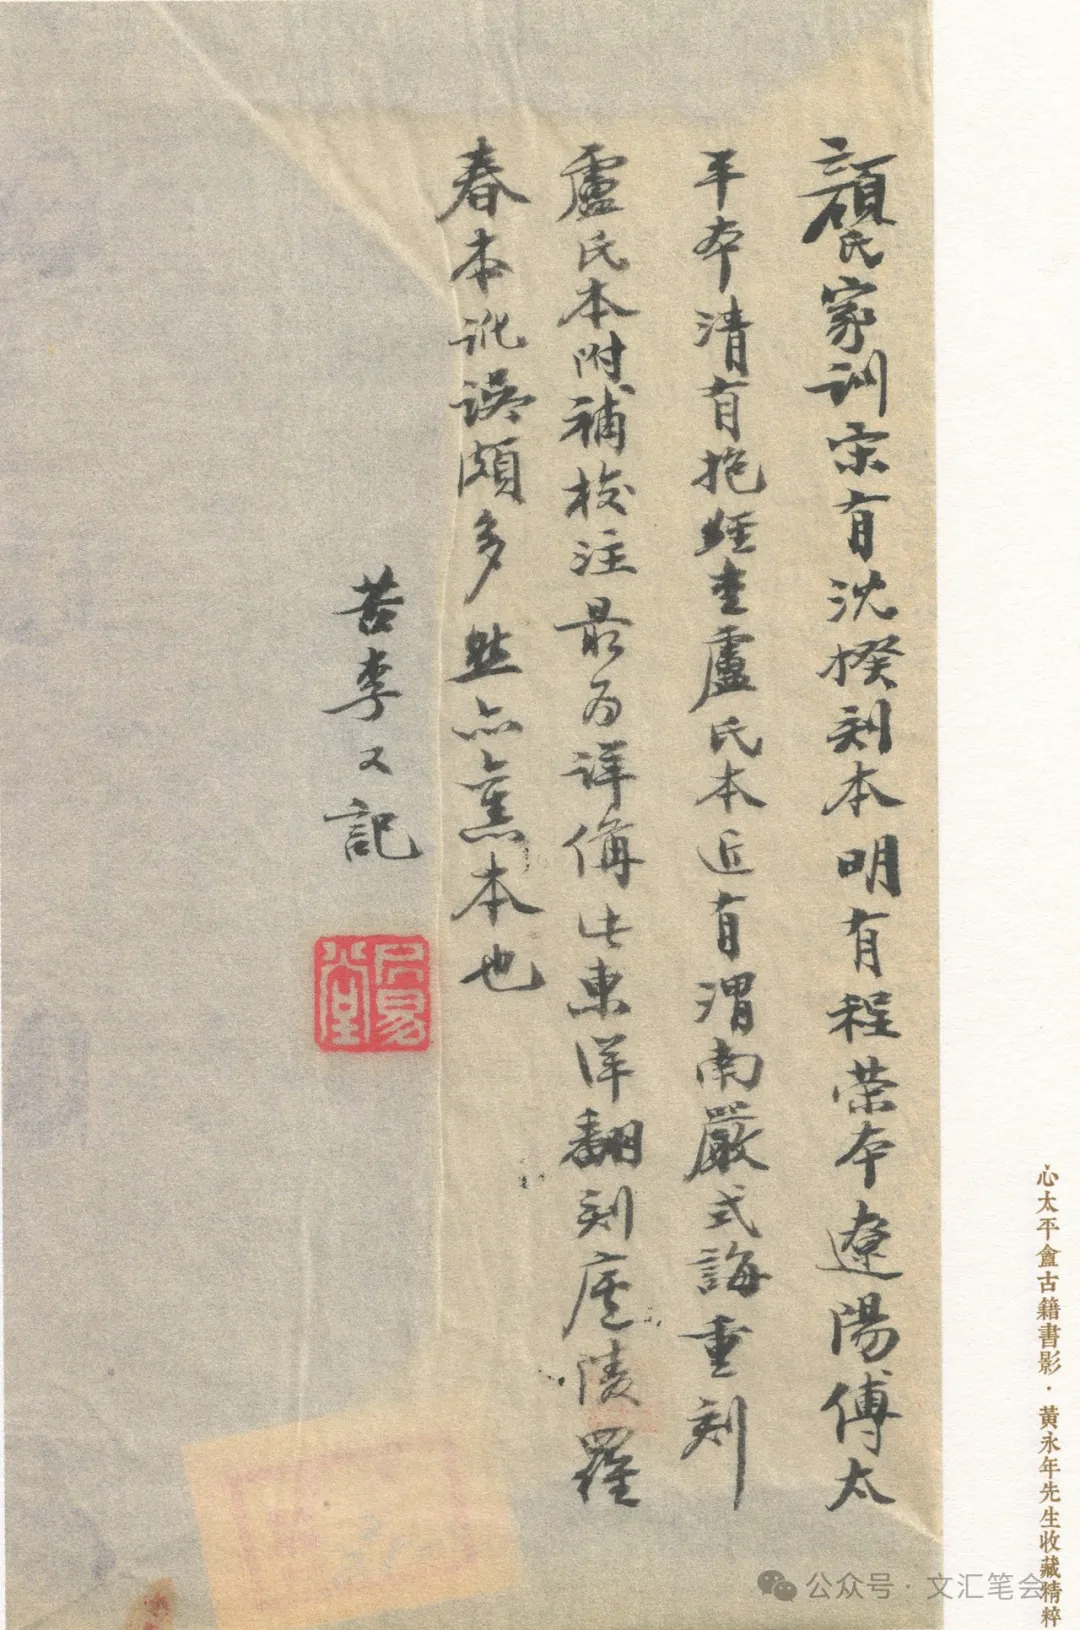 顔氏家訓宋有沈揆刻本明有程榮本遼陽傅太
平本清有抱經堂盧氏本近有渭南嚴式誨重刻
盧氏本附補校注最爲詳備此東洋翻刻廬陵羅
春本訛誤頗多然亦舊本也
苦李又記
易堂
心太平盦古籍書影·黃永年先生收藏精粹
公众号·文汇笔会